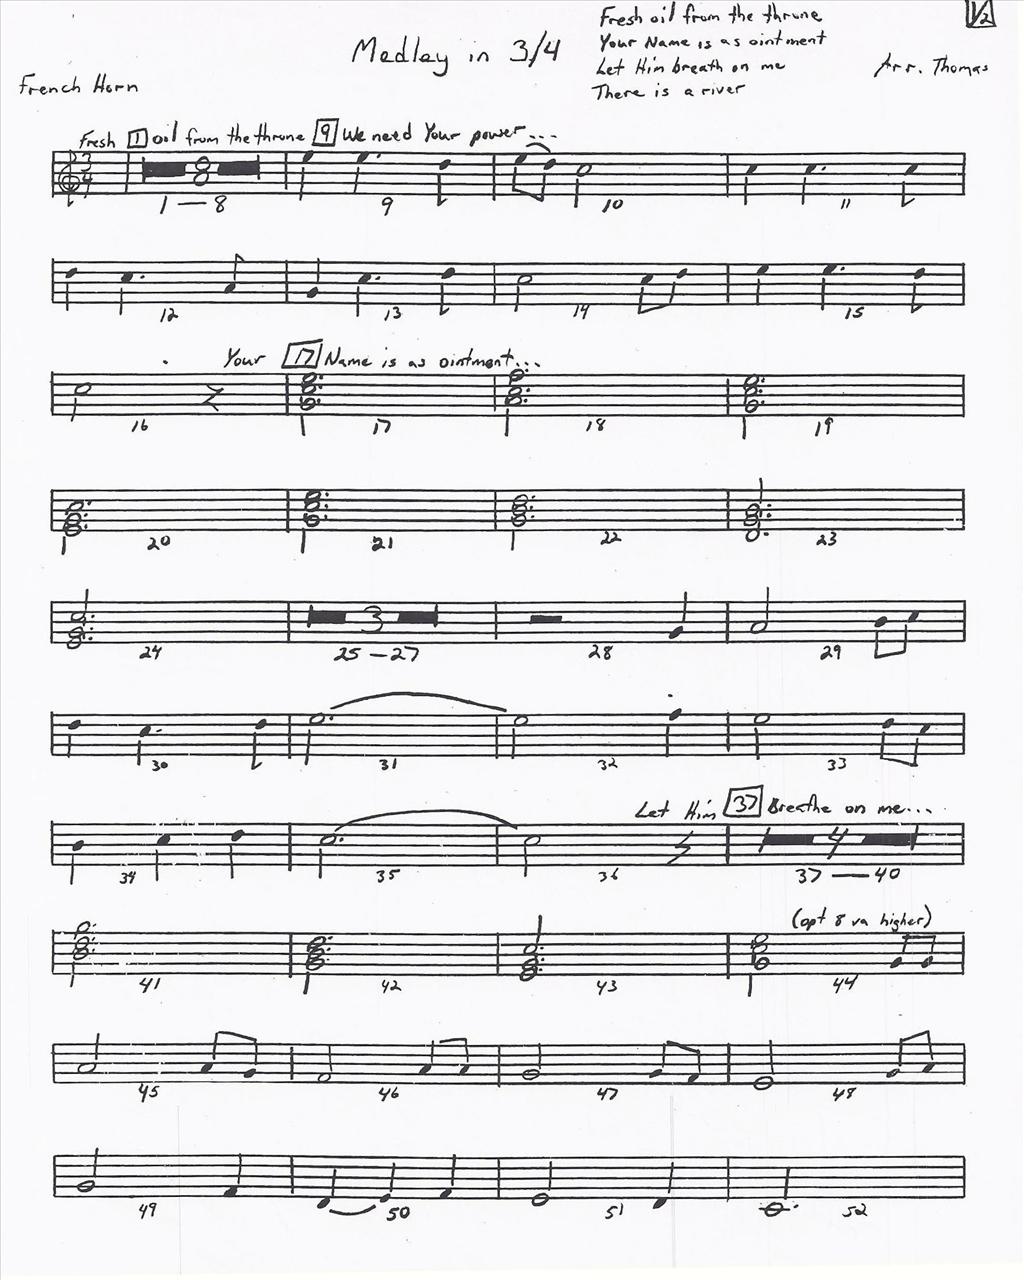 Fresh oil from the throne
1/2
Medley in 3/4
Your Name is as ointment
Let Him breath on me
Arr. Thomas
French Horn
There is a river
Fresh 1 oil from the throne 9 We need Your power...
3
4
8
1 — 8 9 10 11
12 13 14 15
Your 17 Name is as ointment...
16 17 18 19
20 21 22 23
3
24 25 — 27 28 29
30 31 32 33
Let Him 37 Breathe on me...
4
34 35 36 37 — 40
(opt 8 va higher)
41 42 43 44
45 46 47 48
49 50 51 52